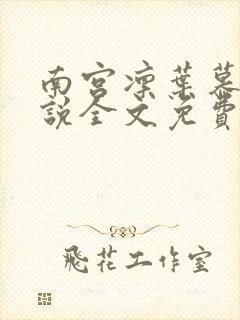 南宮凜葉慕
說全文免費
飛花工作室